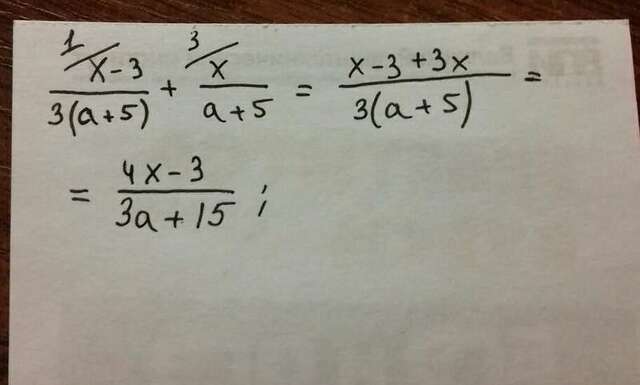 1/ (x-3)/(3(a+5)) + 3/ x/(a+5) = (x-3+3x)/(3(a+5)) =
= (4x-3)/(3a+15) ;